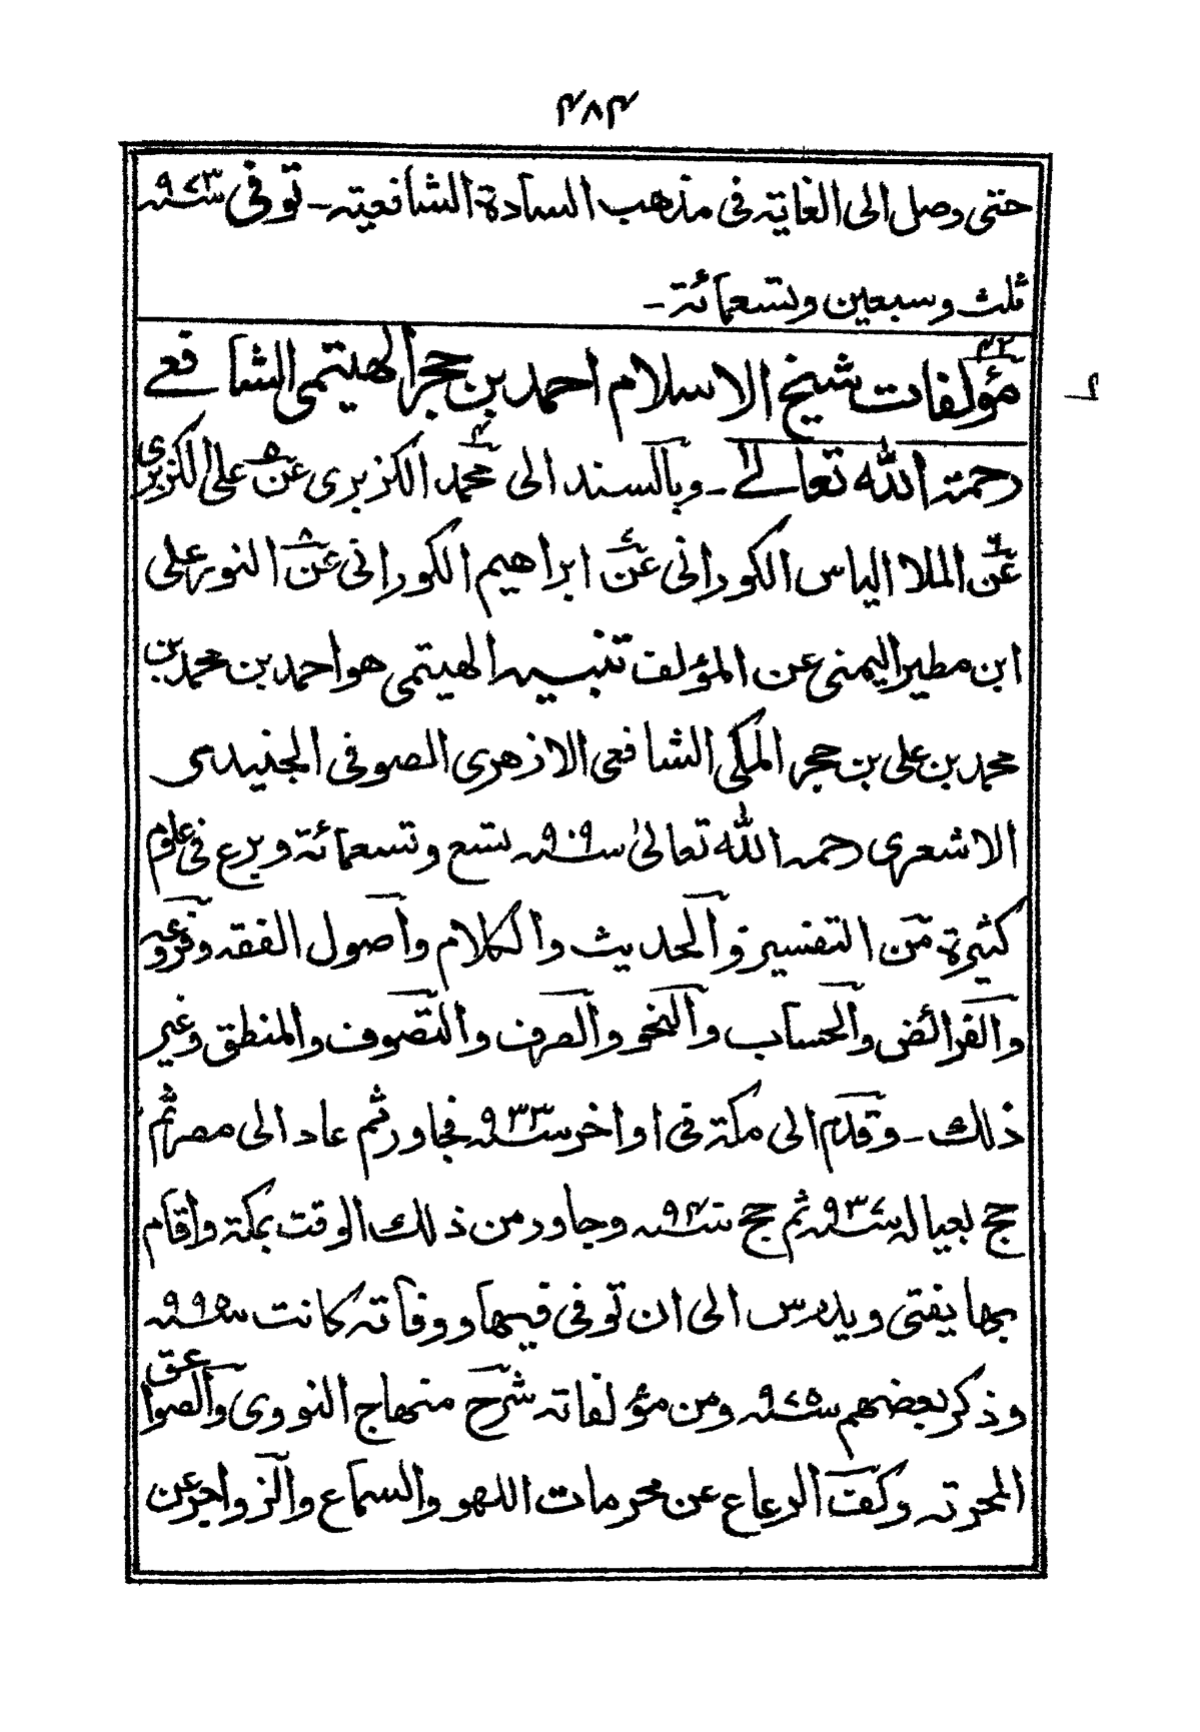 ۴۸۴
حتى وصل الى الغاية فى مذهب السادة الشافعية ـ توفى سنة ۹۷۳
ثلث وسبعين وتسعمائة ـ
مؤلفات شيخ الاسلام احمد بن حجر الهيتمى الشافعے
رحمة الله تعالےٰ ـ وبالسند الى محمد الكزبرى عن على الكزبرى
عن الملا الياس الكورانى عن ابراهيم الكورانى عن النور على
ابن مطير اليمنى عن المؤلف تنبيه الهيتمى هو احمد بن محمد بن
محمد بن على بن حجر المكى الشافعى الازهرى الصوفى الجنيدى
الاشعرى رحمه الله تعالىٰ سنة ۹۰۹ تسع وتسعمائة وبرع فى علوم
كثيرة من التفسير والحديث والكلام واصول الفقه وفروعه
والفرائض والحساب والنحو والصرف والتصوف والمنطق وغير
ذلك ـ وقدم الى مكة فى اواخر سنة ۹۳۳ فجاور ثم عاد الى مصر ثم
حج بعياله سنة ۹۳۷ ثم حج سنة ۹۴ وجاور من ذلك الوقت بمكة واقام
بها يفتى ويدرس الى ان توفى فيها ووفاته كانت سنة ۹۹۵
وذكر بعضهم سنة ۹۷۵ ومن مؤلفاته شرح منهاج النووى والصواعق
المحرقة وكف الرعاع عن محرمات اللهو والسماع والزواجر عن